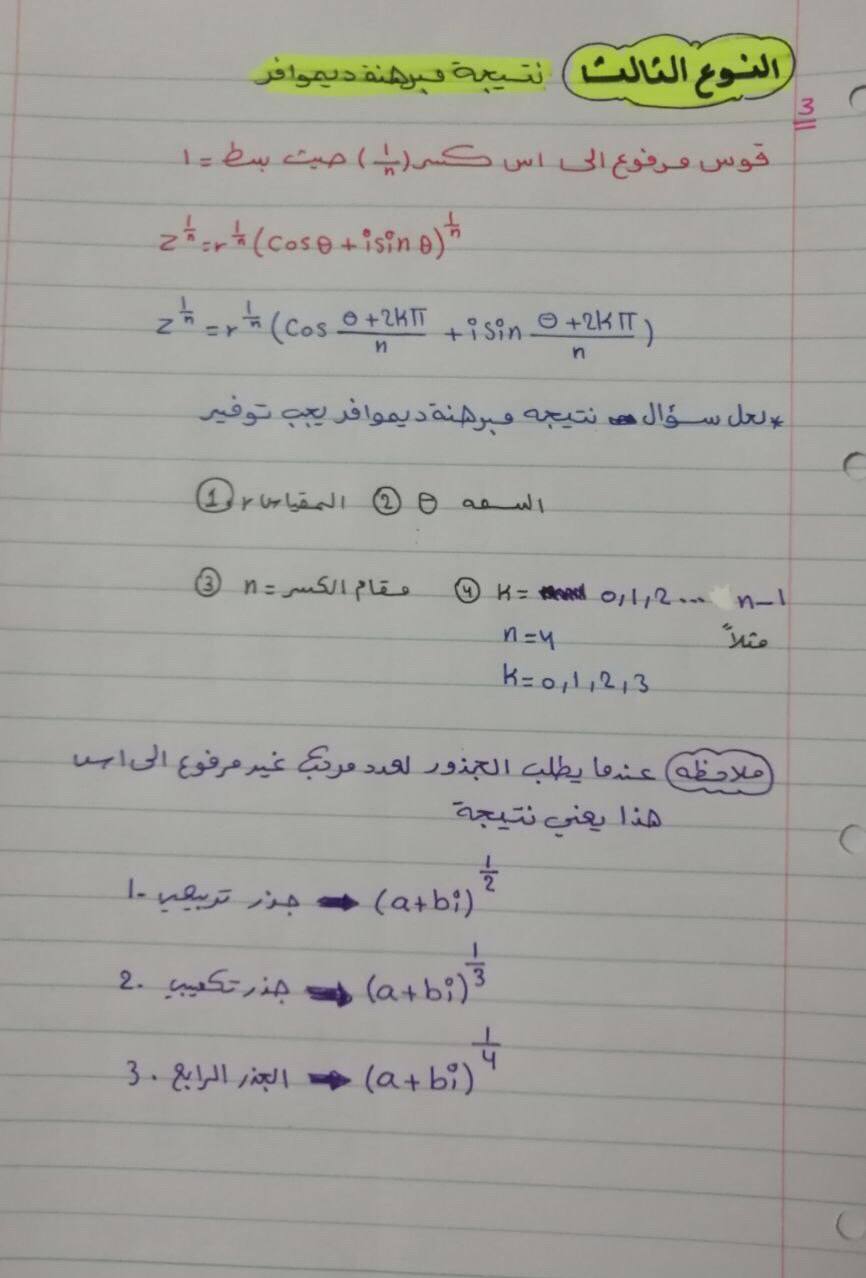 النوع الثالث نتيجة مبرهنة ديموافر
3
قوس مرفوع الى اس كسر (1/n) حيث بسط = 1
z^(1/n) = r^(1/n) (cosθ + isin θ)^(1/n)
z^(1/n) = r^(1/n) (cos (θ+2kπ)/n + isin (θ+2kπ)/n)
*لحل سؤال نتيجه مبرهنة ديموافر يجب توفير
① المقياس r ② θ السعه
③ n = مقام الكسر ④ k = 0,1,2... n-1
مثلاً n=4
k=0,1,2,3
ملاحظه عندما يطلب الجذور لعدد مركب غير مرفوع الى اس
هذا يعني نتيجة
1. جذر تربيعي → (a+bi)^(1/2)
2. جذر تكعيبي → (a+bi)^(1/3)
3. الجذر الرابع → (a+bi)^(1/4)